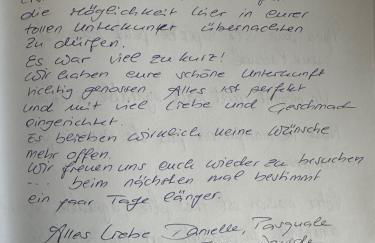 die Möglichkeit hier in eurer
tollen Unterkunft übernachten
zu dürfen.
Es war viel zu kurz!
Wir haben eure schöne Unterkunft
richtig genossen. Alles ist perfekt
und mit viel Liebe und Geschmack
eingerichtet.
Es blieben wirklich keine Wünsche
mehr offen.
Wir freuen uns euch wieder zu besuchen
... beim nächsten mal bestimmt
ein paar Tage länger.
Alles Liebe, Danielle, Pasquale